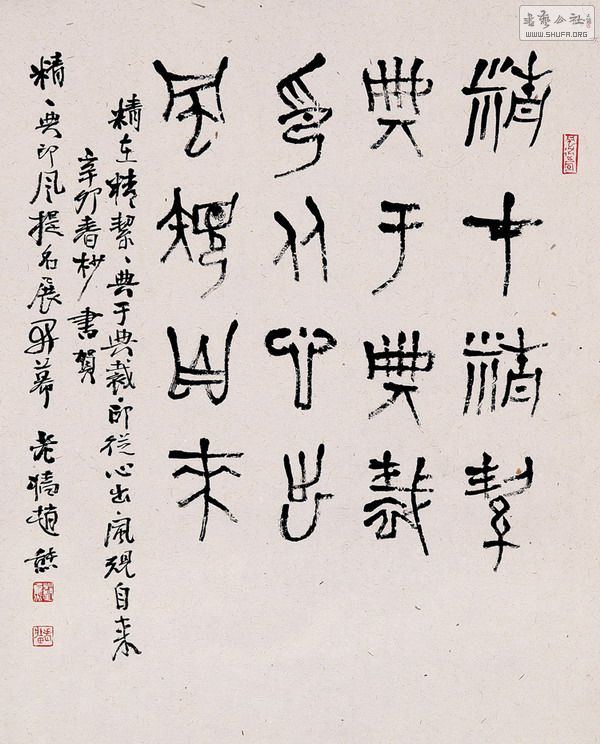 書藝公社
WWW.SHUFA.ORG
精才精絜
典于典裁
印从心出
風規自來
精在精絜、典于典裁、印從心出、風規自来
辛卯春杪書賀
精、典印风提名展開幕 老牆趙熊